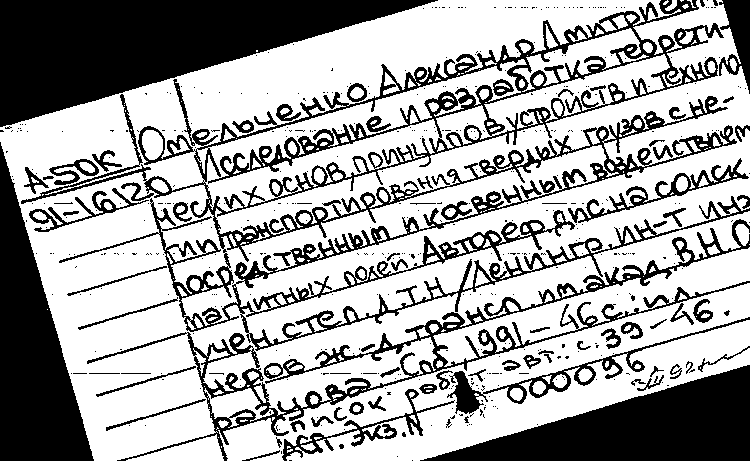 Омельченко, Александр Дмитриевич
А-50К
Исследование и разработка теорети-
91-16120
ческих основ, принципов устройств и техноло
гии транспортирования твердых грузов с не-
посредственным и косвенным воздействием
магнитных полей: Автореф. дис. на соиск.
учен. степ. д.т.н / Ленингр. ин-т инж
неров ж.-д. трансп. им акад. В.Н.О
разцова. - Спб., 1991. - 46 с.: ил.
Список работ авт.: с. 39-46.
АСП. Экз. N 000096